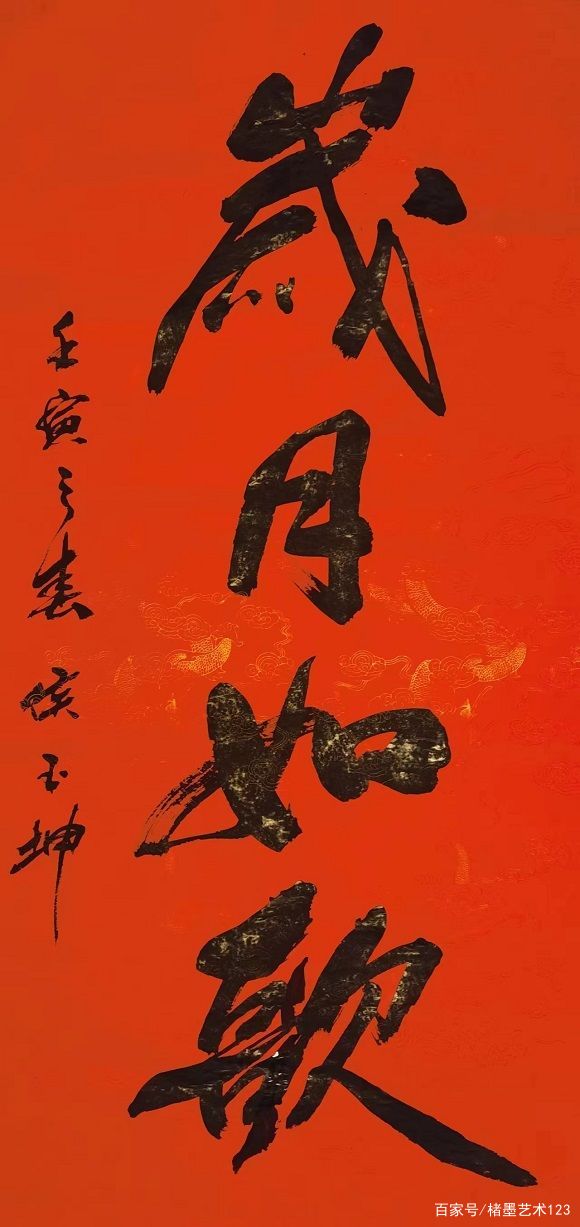 歲月如歌
壬寅之春 侯玉坤
百家号/楮墨艺术123